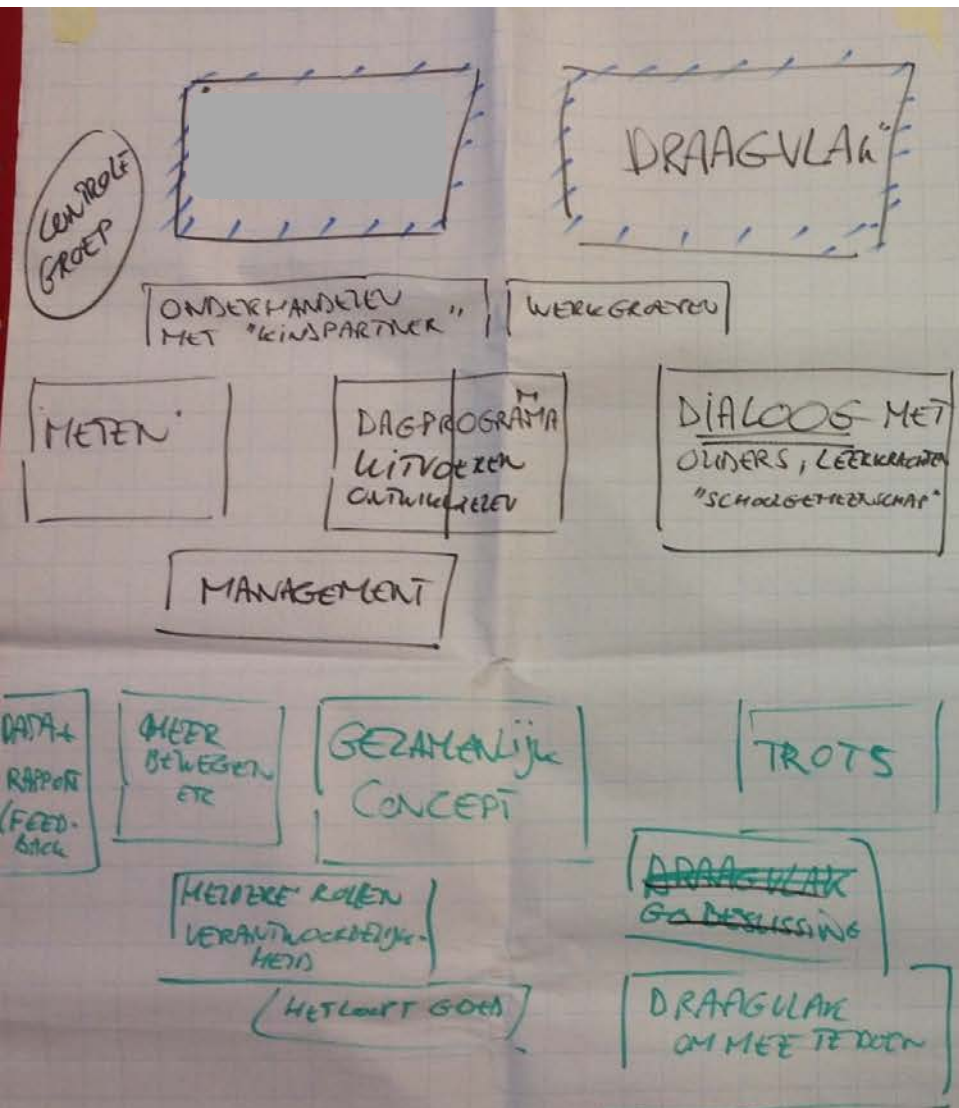 CONTROLE
GROEP
"DRAAGVLAK"
ONDERHANDELEN
MET "KINDPARTNER"
WERKGROEPEN
METEN
DAGPROGRAMMA
UITVOEREN
ONTWIKKELEN
DIALOOG MET
OUDERS, LEERKRACHTEN
"SCHOOLGEMEENSCHAP"
MANAGEMENT
DATA+
RAPPORT
(FEED-
BACK
MEER
BEWEGEN
ETC
GEZAMENLIJK
CONCEPT
TROTS
DRAAGVLAK
GO BESLISSING
HELDERE ROLLEN
VERANTWOORDELIJK-
HEID
HET LOOPT GOED
DRAAGVLAK
OM MEE TE DOEN